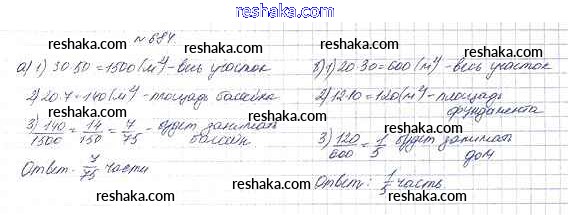 reshaka.com
№ 684.
reshaka.com
reshaka.com
а) 1) 30·50 = 1500 (м²) - весь участок
2) 20·7 = 140 (м²) - площадь бассейна
3) 140/1500 = 14/150 = 7/75 - будет занимать бассейн
Ответ: 7/75 части
б) 1) 20·30 = 600 (м²) - весь участок
2) 12·10 = 120 (м²) - площадь фундамента
3) 120/600 = 1/5 будет занимать дом
Ответ: 1/5 часть.
reshaka.com
reshaka.com
reshaka.com
reshaka.com
reshaka.com
reshaka.com